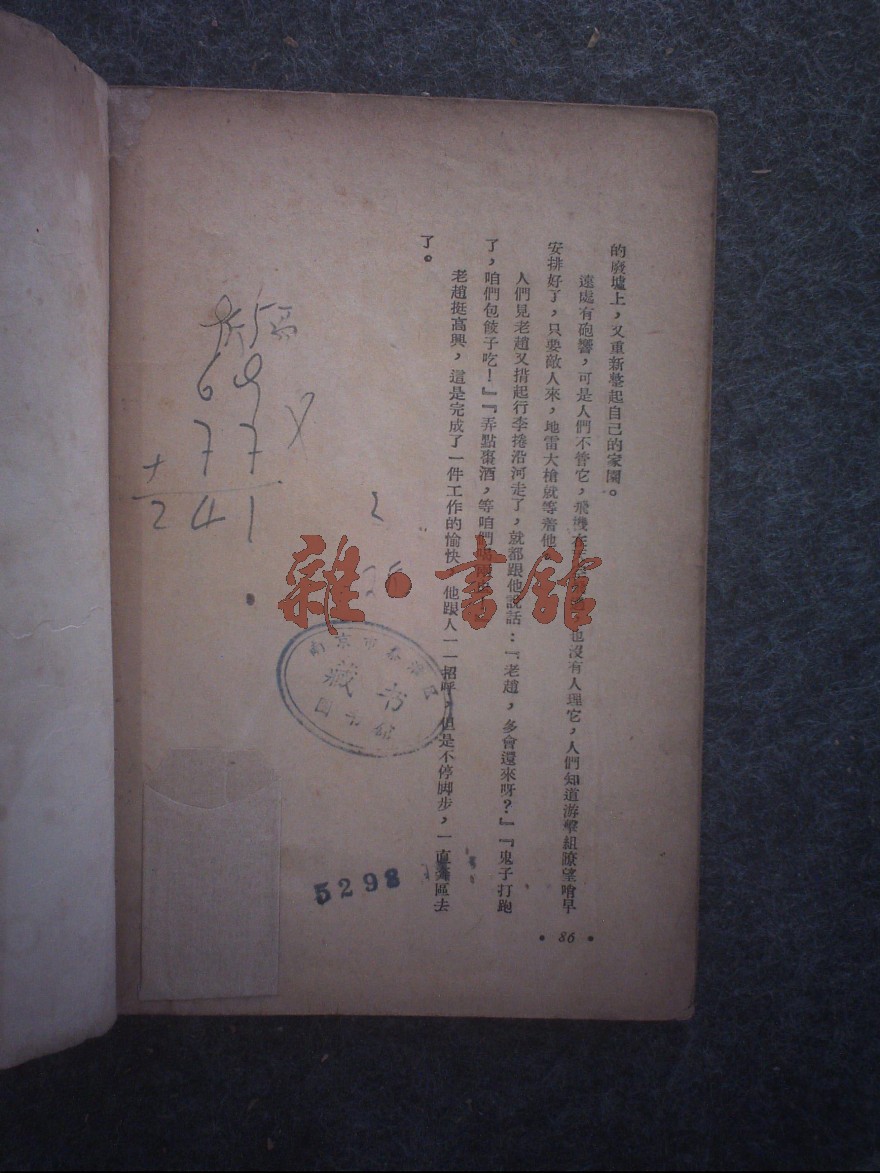 的廢墟上，又重新整起自己的家園。
遠處有砲響，可是人們不管它，飛機在也沒有人理它，人們知道游擊組瞭望哨早
安排好了，只要敵人來，地雷大槍就等着他
人們見老趙又揹起行李捲沿河走了，就都跟他說話：『老趙，多會還來呀？』『鬼子打跑
了，咱們包餃子吃！』『弄點棗酒，等咱們
老趙挺高興，這是完成了一件工作的愉快，他跟人一一招呼，但是不停脚步，一直區去
了。
• 86 •
69
77
+
241
2
雜·書館
南京市
藏书
图书馆
5298